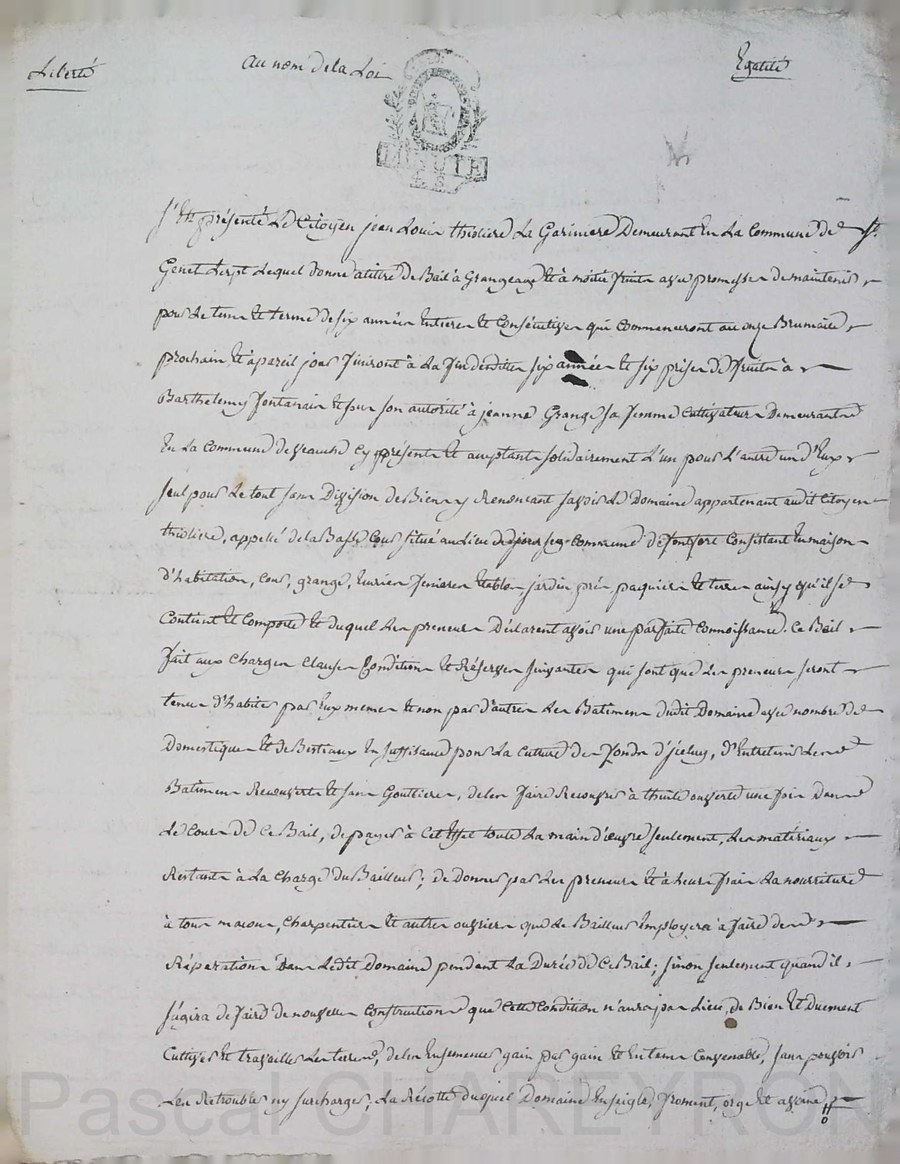 Liberté au nom de la Loi Egalité
S'est présenté Le Citoyen jean Louis thioliere La Gariniere Demeurant En La Commune de St
Genet Lerpt Lequel donne atitre de Bail à Grangeage Et à moitié fruits avec promesse de maintenir
pour Le tems Et terme de six années Entieres Et Consécutives qui Commenceront au onze Brumaire
prochain Et à pareil jour finiront à La fin desdites six années Et six prises de fruits à
Barthelemy fontanais Et sur son autorité à jeanne Grange sa femme Cultivateurs Demeurants
En La Commune de veauche Cy présents Et acceptants solidairement L'un pour L'autre un d'Eux
seul pour Le tout sans Division de Biens y Renoncant savoir Le Domaine appartenant audit Citoyen
thioliere, appellé de la Basse Cour situé au Lieu de Commune de fontfort Consistant En maison
d'habitation, Cour, grange, Ecuries fenieres Etables jardin prés paquiers Et terres ainsy qu'il se
Contient Et Comporte Et duquel Les preneurs Déclarent avoir une parfaite Connoissance. Ce Bail
fait aux Charges Clauses Condition Et Réserves suivantes qui sont que Les preneurs seront
tenus d'habiter par Eux memes Et non par d'autres Les Batimens dudit Domaine avec nombre de
Domestiques Et de Bestiaux En suffisance pour La Culture des fonds d'jceluy, d'Entretenir Les
Batimens Recouverts Et sans Gouttieres, de les faire Recouvrir à thuile ouverte une fois Dans
Le Cours de Ce Bail, de payer à Cet Effet toute La main d'œuvre seulement, Les matériaux
Restants à La Charge du Bailleur; de Donner par Les preneurs Et à leurs frais La nourriture
à tous macons, Charpentiers Et autres ouvriers que Le Bailleur Employera à faire des
Réparations Dans Ledit Domaine pendant La Durée de Ce Bail; sinon seulement quand il
s'agira de faire de nouvelles Constructions que Cette Condition n'aura pas Lieu, de Bien Et Duement
Cultiver Et travailler Les terres, de les Ensemencer gain par gain Et En tems Convenable, sans pouvoir
Les Retroubler ny surcharger, La Récolte duquel Domaine En seigle, froment, orge Et avoine,
Pascal CHAREYRON